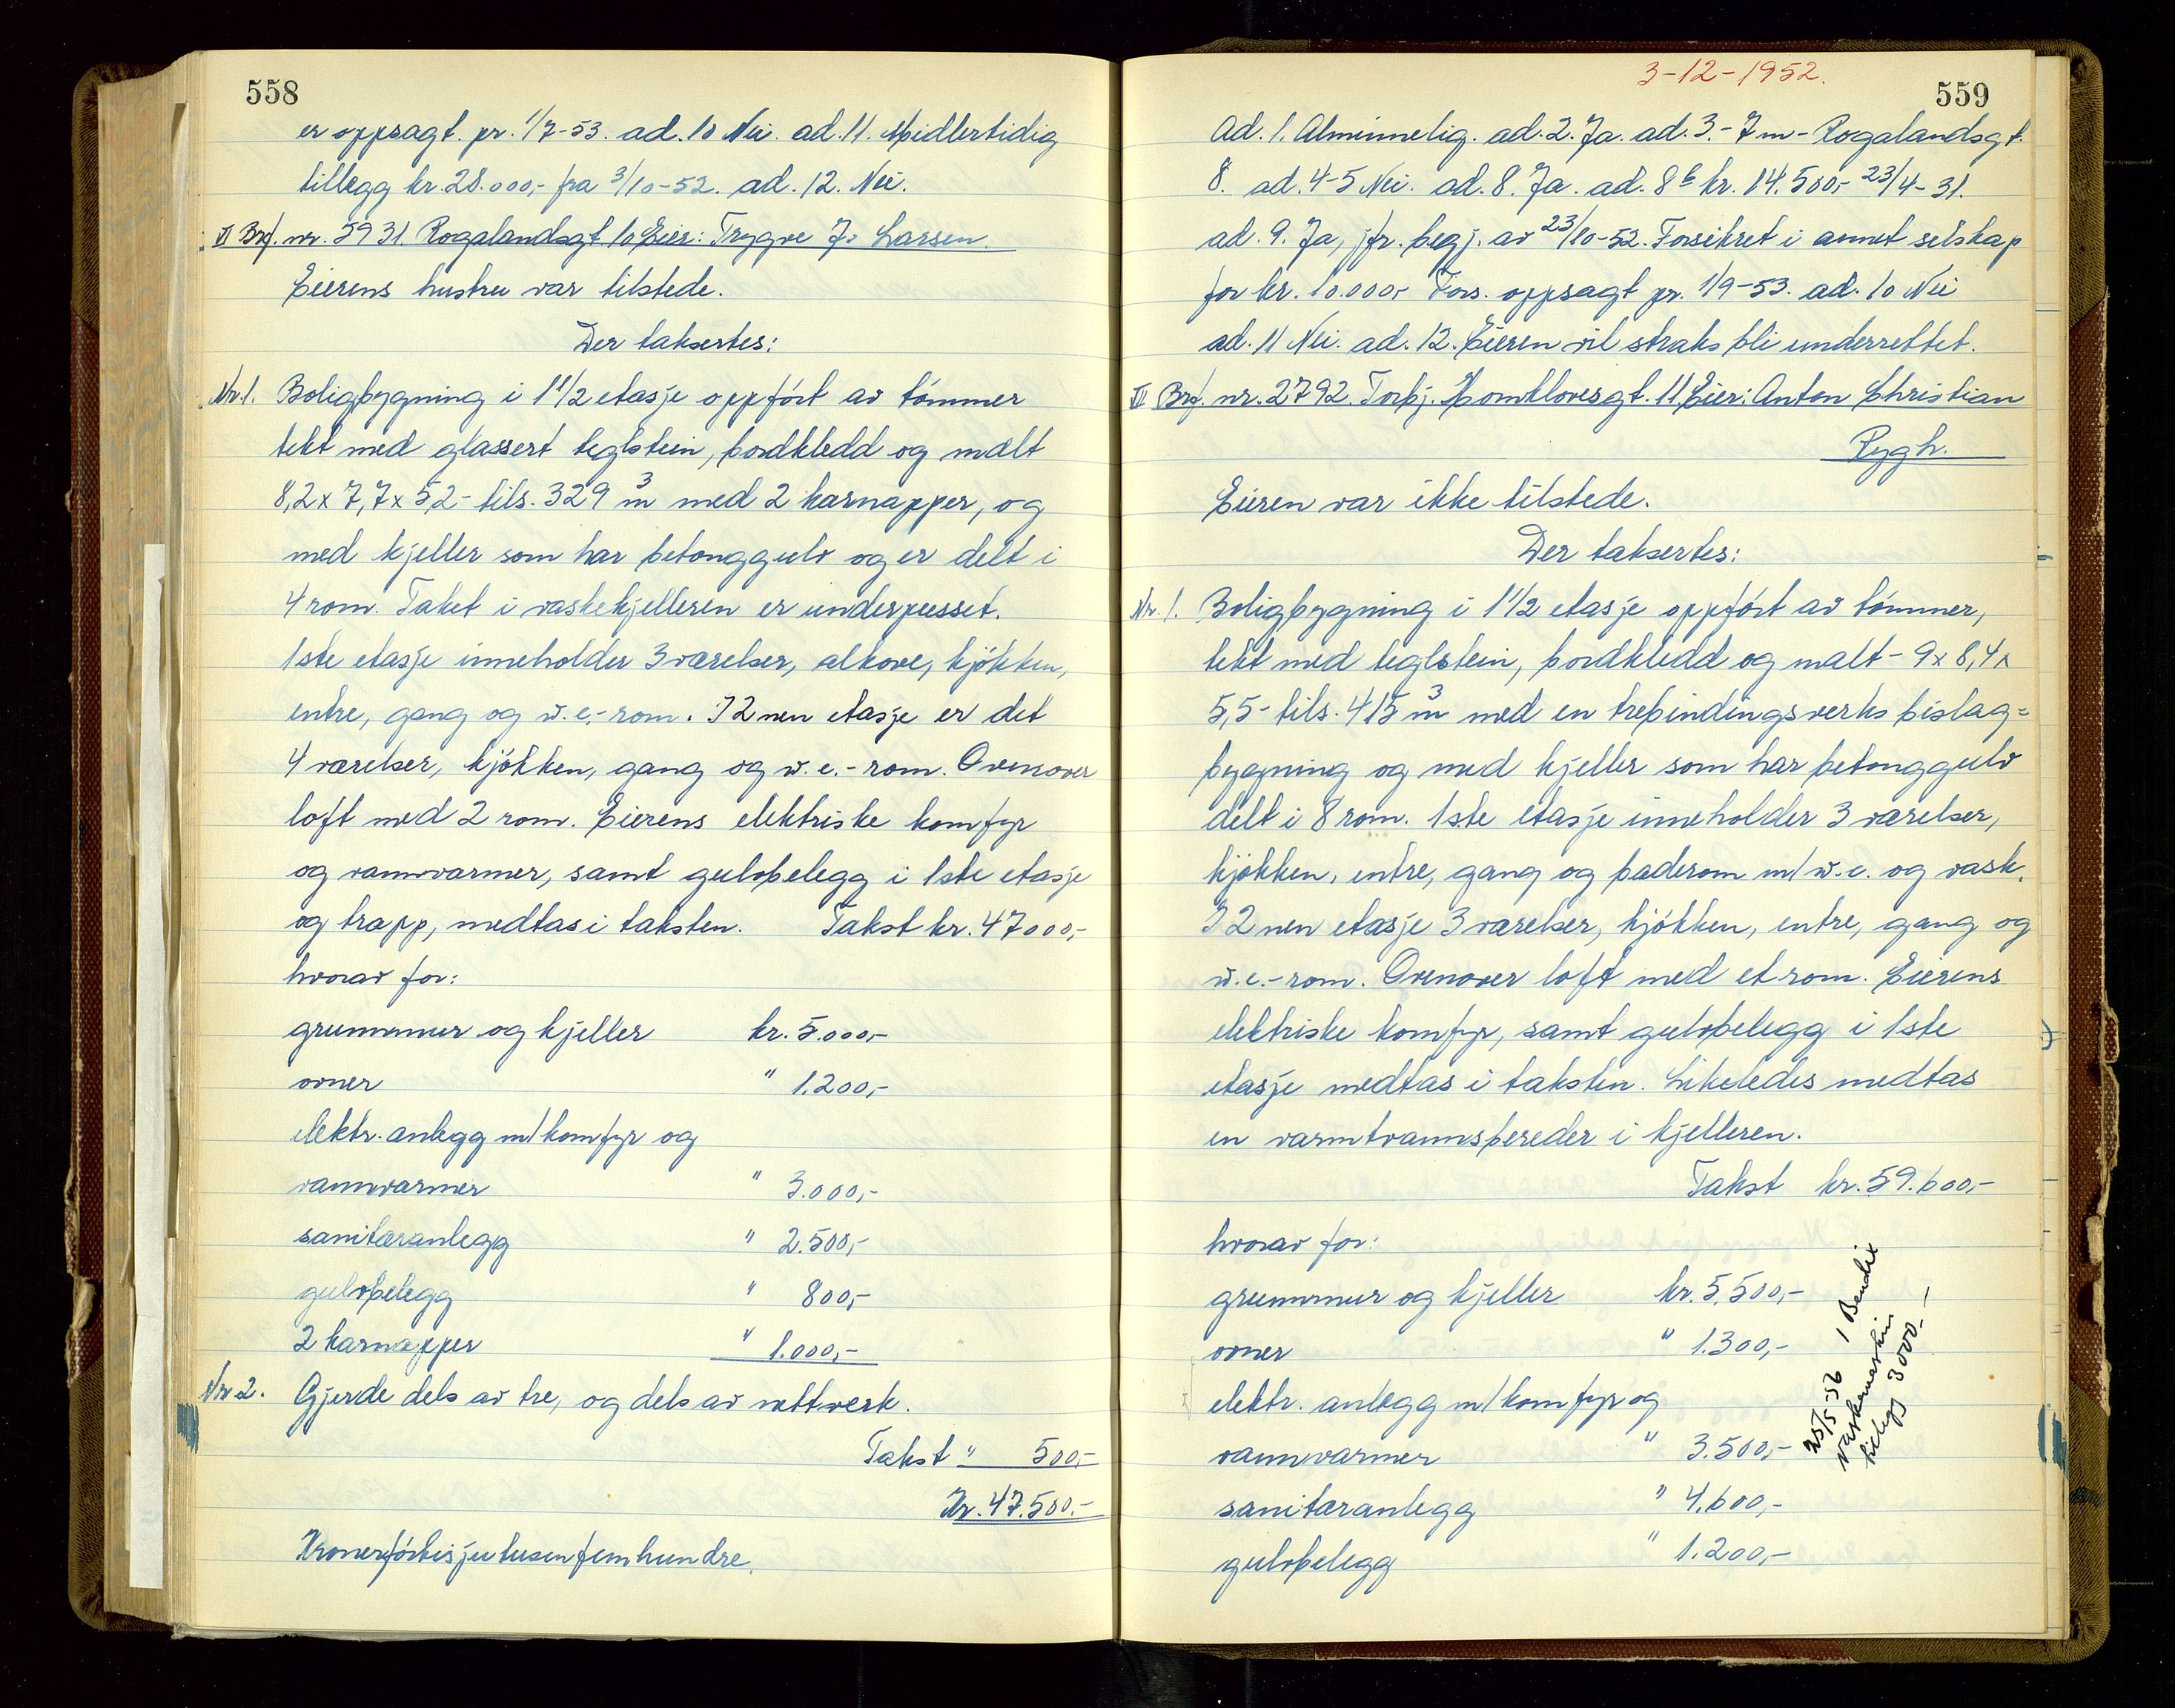 558
er oppsagt. pr. 1/7-53. ad. 10 Nei. ad. 11. Midlertidig
tillegg kr. 28.000,- fra 3/10-52. ad. 12. Nei.
VI Brf. nr. 5931 Rogalandsgt. 10 Eier: Trygve J. Larsen.
Eierens hustru var tilstede.
Der taksertes:
Nr. 1. Boligbygning i 1 1/2 etasje oppført av tømmer
tekt med glassert teglstein, bordkledd og malt
8,2 x 7,7 x 5,2 - tils. 329 m³ med 2 karnapper, og
med kjeller som har betonggulv og er delt i
4 rom. Taket i vaskekjelleren er underpusset.
1ste etasje inneholder 3 værelser, alkove, kjøkken,
entre, gang og w.c.-rom. I 2nen etasje er det
4 værelser, kjøkken, gang og w.c.-rom. Ovenover
loft med 2 rom. Eierens elektriske komfyr
og vannvarmer, samt gulvbelegg i 1ste etasje
og trapp, medtas i taksten. Takst kr. 47000,-
hvorav for:
grunnmur og kjeller kr. 5.000,-
ovner " 1.200,-
elektr. anlegg m/komfyr og
vannvarmer " 3.000,-
sanitæranlegg " 2.500,-
gulvbelegg " 800,-
2 karnapper " 1.000,-
Nr. 2. Gjerde dels av tre, og dels av nettverk.
Takst " 500,-
Kr. 47.500.-
Kronerførtisjutusenfemhundre.
3-12-1952.
559
Ad. 1. Alminnelig. ad. 2. Ja. ad. 3. - 7 m - Rogalandsgt.
8. ad. 4-5 Nei. ad. 8. Ja. ad. 8b kr. 14.500,- 23/4-31.
ad. 9. Ja, jfr. begj. av 23/10-52. Forsikret i annet selskap
for kr. 10.000,- Fors. oppsagt pr. 1/9-53. ad. 10 Nei
ad. 11 Nei. ad. 12. Eieren vil straks bli underrettet.
VII Brf. nr. 2792. Torbj. Homklovesgt. 11 Eier: Anton Christian
Rygh.
Eieren var ikke tilstede.
Der taksertes:
Nr. 1. Boligbygning i 1 1/2 etasje oppført av tømmer,
tekt med teglstein, bordkledd og malt - 9 x 8,4 x
5,5 - tils. 415 m³ med en trebindingsverks bislag=
bygning og med kjeller som har betonggulv
delt i 8 rom. 1ste etasje inneholder 3 værelser,
kjøkken, entre, gang og baderom m/w.c. og vask.
I 2nen etasje 3 værelser, kjøkken, entre, gang og
w.c.-rom. Ovenover loft med et rom. Eierens
elektriske komfyr, samt gulvbelegg i 1ste
etasje medtas i taksten. Likeledes medtas
en varmtvannsbereder i kjelleren.
Takst kr. 59.600,-
hvorav for:
grunnmur og kjeller kr. 5.500,-
ovner " 1.300,-
elektr. anlegg m/komfyr og
vannvarmer " 3.500,-
sanitæranlegg " 4.600,-
gulvbelegg " 1.200,-
25/5-56 1 Bendix
vaskemaskin
tillegg 3000.-